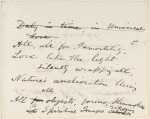 Duty in time, in Universal
Love
All, all for Immortality,
Love like the light
silently wrapping all,
Nature's amelioration blessing
all
All for objects, forms, Humanities
to Spiritual Images